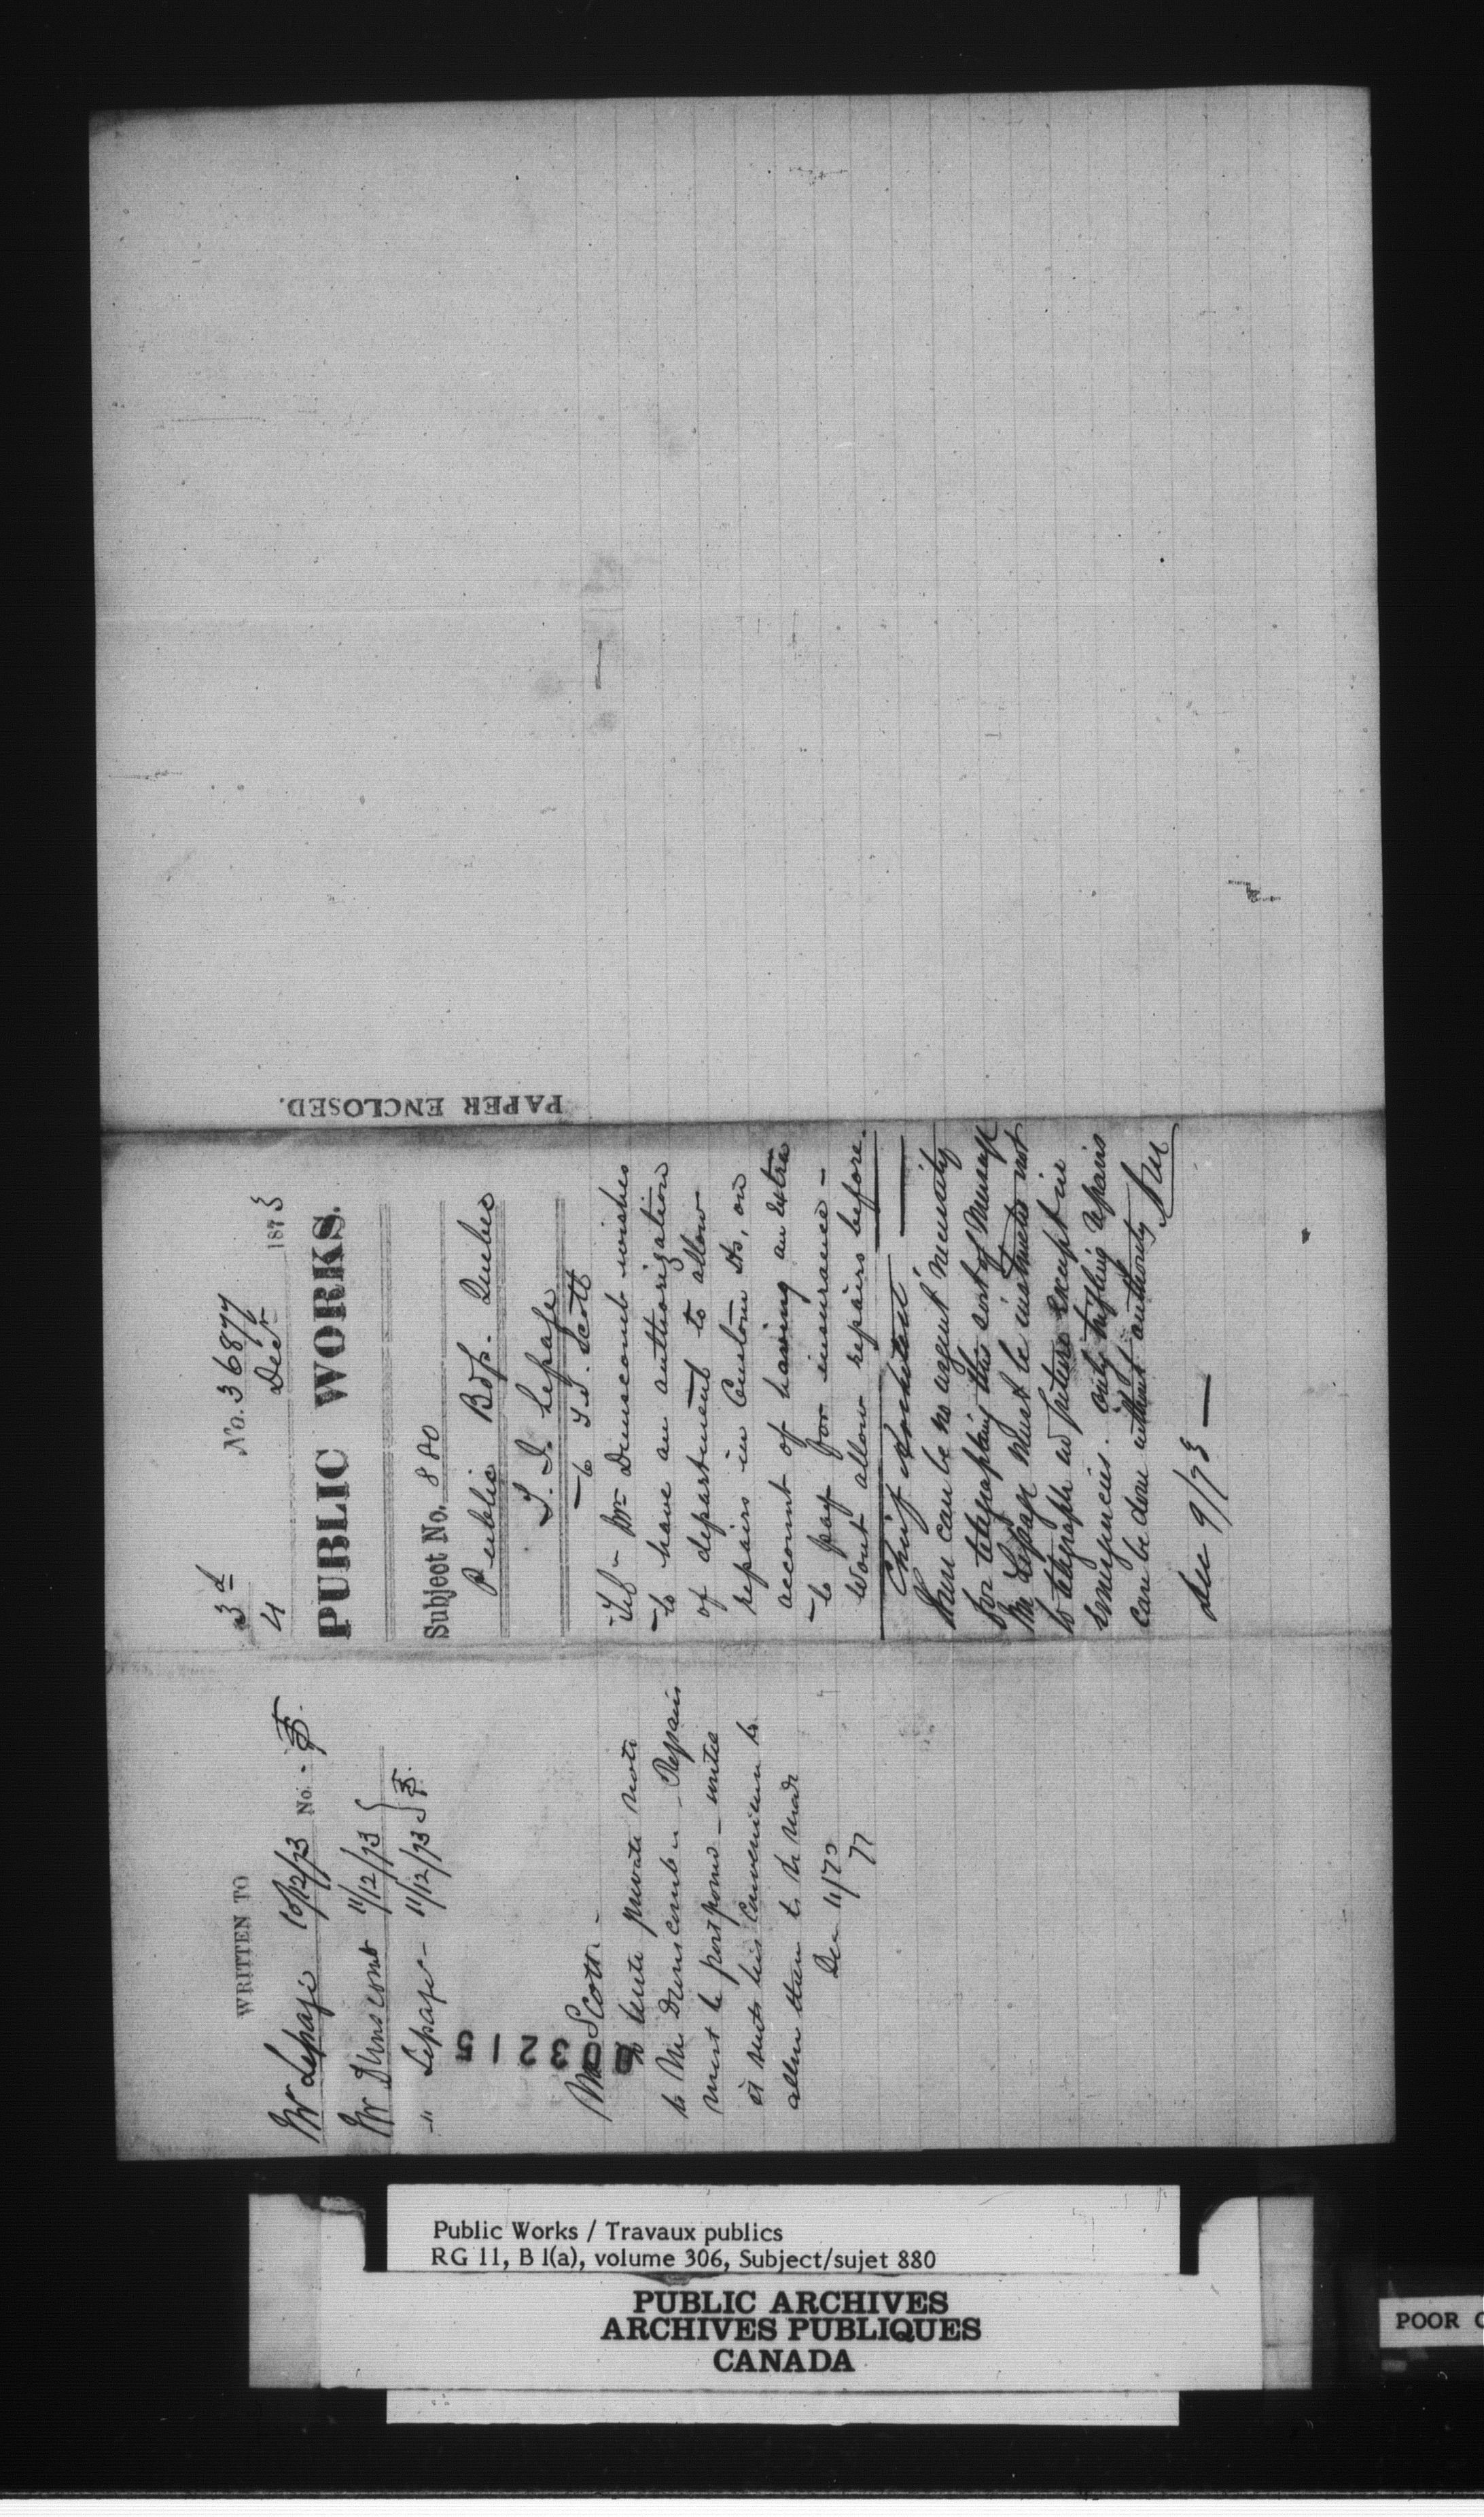 3d
No. 36877
4 Decr 1873
PUBLIC WORKS.
Subject No. 880
Public Bdgs. Quebec
T. I. Lepage
to T. S. Scott
Tel - Mr Dunscomb wishes
to have an authorization
of department to allow
repairs in Custom Ho, on
account of having an extra
to pay for insurance -
Wont allow repairs before.
Chief Architect
There can be no urgent necessity
for telegraphing this sort of Message
Mr Lepage must be instructed not
to telegraph in future except in
emergencies. only trifling repairs
can be done without authority
Dec 9/73 —
PAPER ENCLOSED.
WRITTEN TO
No.
Mr Lepage 10/12/73
Mr Dunscomb 11/12/73
" Lepage - 11/12/73
03215
Mr Scott -
to write private note
to Mr Dunscomb - Repairs
must be postponed - until
it suits his convenience to
allow them to be made
Dec 11/73
Public Works / Travaux publics
RG 11, B 1(a), volume 306, Subject/sujet 880
PUBLIC ARCHIVES
ARCHIVES PUBLIQUES
CANADA
POOR